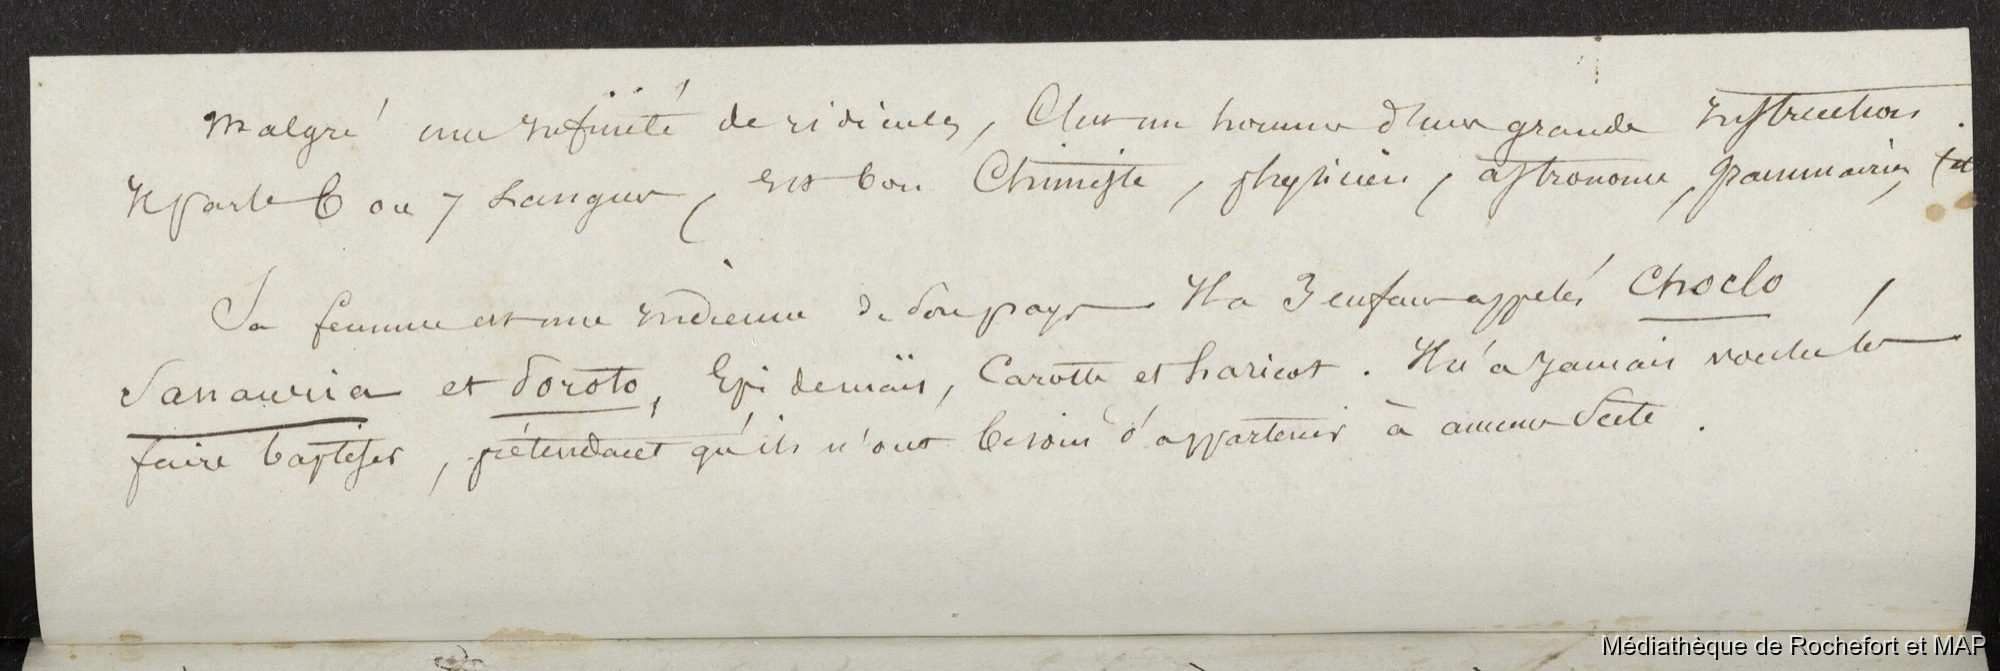 Malgré une infinité de ridicules, C'est un homme d'une grande instruction.
Il parle 6 ou 7 Langues, est bon Chimiste, physicien, astronome, grammairien
Sa femme est une indienne de son pays Il a 3 enfans appelés Choclo,
Sanauria et Poroto, Epi de maïs, Carotte et haricot. Il n'a jamais voulu les
faire baptiser, prétendant qu'ils n'ont besoin d'appartenir à aucune Secte.
Médiathèque de Rochefort et MAP